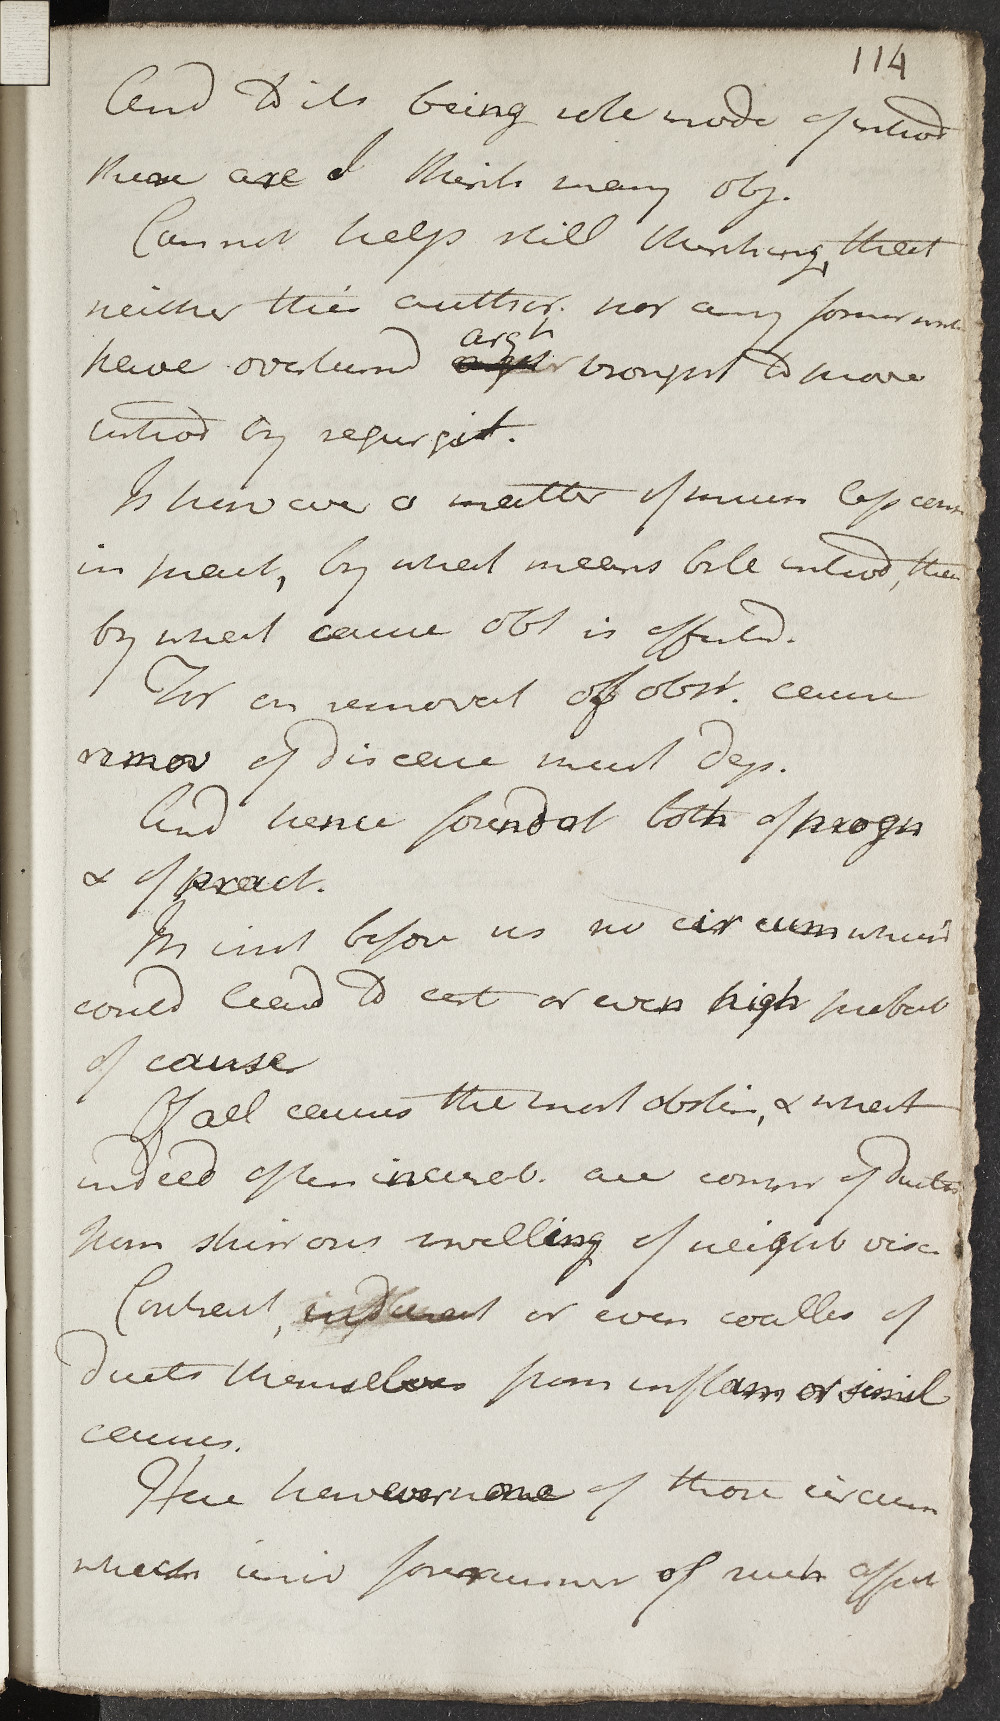 114
And to its being sole mode of introd
there are I think many obj.
Cannot help still thinking, that
neither this author. nor any former
have overturned argts brought to prove
introd by regurgit.
Is however a matter of much less
in pract, by what means bile introd, than
by what cause obst is effected.
For on removal of obst. cause
remov of disease must dep.
And hence foundat both of progn
& of pract.
In inst before us no circum which
could lead to cert or even high probab
of cause
Of all causes the most obstin, & what
indeed often incurab. are compr of ducts
from skirrous swelling of neighb visc
Contract, indurat or even coalles of
ducts themselves from inflam or simil
causes.
Here however none of those circum
which forerunner of such effect